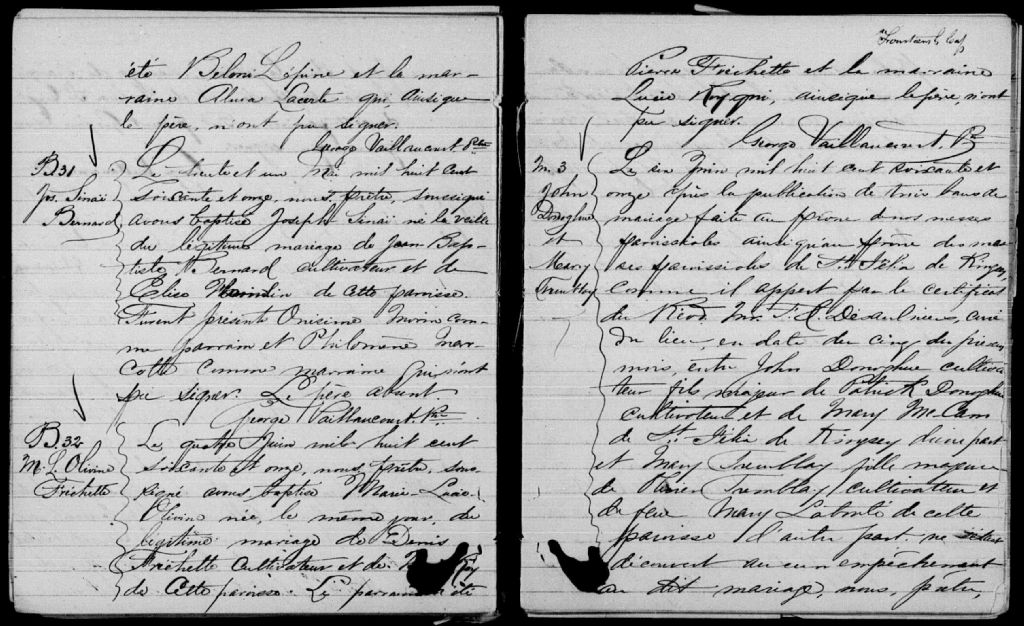 été Beloni Lépine et la mar-
raine Alma Lacerte qui ainsique
le père, n'ont pu signer.
George Vaillancourt Ptre
B 31
Jos. Sinaï
Bernard
Le trente et un Mai mil huit cent
soixante et onze, nous, prêtre, soussigné
avons baptisé Joseph Sinaï né la veille
du légitime mariage de Jean Bap-
tiste N. Bernard cultivateur et de
Elise de cette paroisse.
Furent présent Onésime Morin com-
me parrain et Philomène Mar-
cotte comme marraine qui n'ont
pu signer. Le père absent.
George Vaillancourt. Ptre
B. 32
M. L. Olivine
Frichette
Le quatre Juin mil huit cent
soixante et onze, nous prêtre, sous-
signé avons baptisé Marie-Lucie-
Olivine née, le même jour, du
légitime mariage de Denis
Frichette cultivateur et de
de cette paroisse. Le parrain a été
Pierre Frichette et la marraine
Lucie Roy qui, ainsique le père, n'ont
pu signer.
George Vaillancourt. Ptre
M. 3
John
Donoghue
et
Mary
Tremblay
Le six Juin mil huit cent soixante et
onze après la publication de trois bans de
mariage faite au prône de nos messes
paroissiales ainsiqu'au prône des mes-
ses paroissiales de St. Félix de Kingsey
comme il appert par le certificat
du Révd. Mr. F. X. Désaulniers, curé
du lieu, en date du cinq du présent
mois, entre John Donoghue cultiva-
teur fils majeur de Patrick Donoghue
cultivateur et de Mary McCann
de St. Félix de Kingsey d'une part
et Mary Tremblay fille majeure
de Tremblay cultivateur et
de feue Mary de cette
paroisse d'autre part, ne
découvert aucun empêchement
au dit mariage, nous, prêtre,